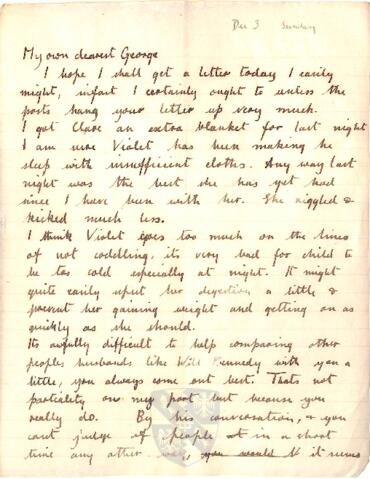 Dec 3 Sunday
My own dearest George
I hope I shall get a letter today I easily
might, infact I certainly ought to unless the
posts hang your letter up very much.
I got Clare an extra blanket for last night
I am sure Violet has been making he
sleep with insufficient clothes. Any way last
night was the best she has yet had
since I have been with her. She niggled &
kicked much less.
I think Violet goes too much on the lines
of not coddling, its very bad for child to
be too cold especially at night. It might
quite easily upset her digestion a little &
prevent her gaining weight and getting on as
quickly as she should.
Its awfully difficult to help comparing other
peoples husbands like Will Kennedy with you a
little, you always come out best. Thats not
partiality on my part but because you
really do. By his conversation, & you
cant judge of people in a short
time any other way, it seems